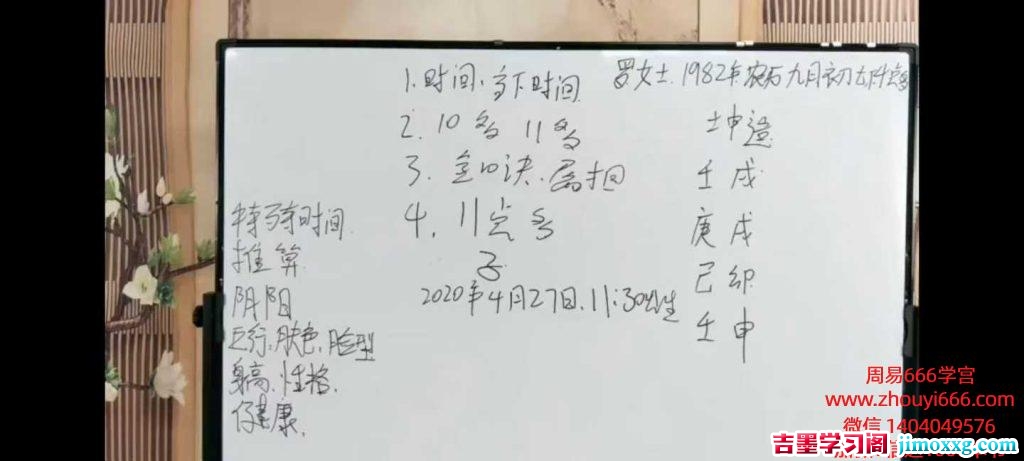 1.时间.当下时间
2.10多 11多
3.金口诀.属相
4.11点多
子
2020年4月27日.11:30出生
特殊时间
推算
阴阳
五行:肤色.脸型
身高.性格.
健康.
罗女士.1982年农历九月初
坤造
壬戌
庚戌
己卯
壬申
周易666学宫
www.zhouyi666.com
微信 1404049576
吉墨学习阁 jimoxxg.com